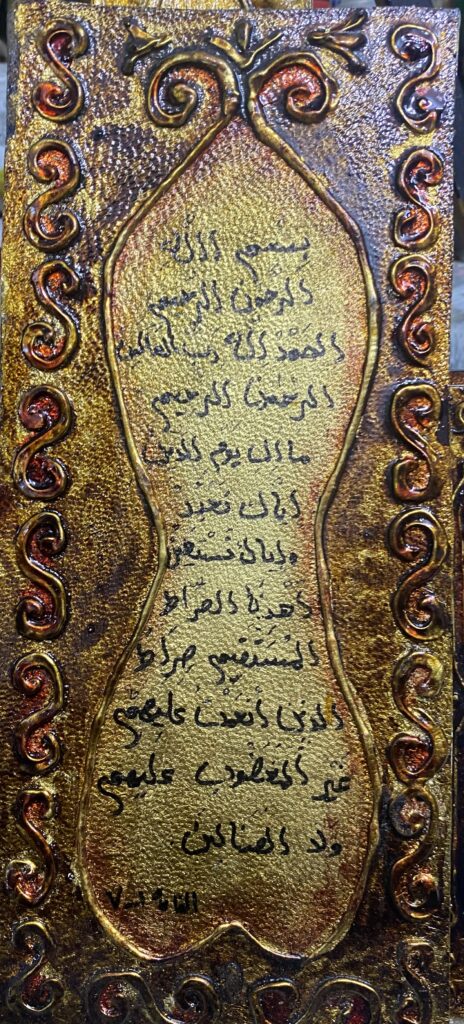 بِسْمِ اللَّه
الرحمن الرحيم
الحَمْد الله رب العالمين
الرحمن الرحيم
مالك يوم الدين
اياك نَعْبُدُ
واياك نَسْتَعِين
أهدنا الصِّرَاط
المُسْتَقِيم صِرَاط
الذين أنْعَمْت عليهم
غَيْر المَغْضُوب عليهم
ولا الضالين
الفاتحة ١-٧